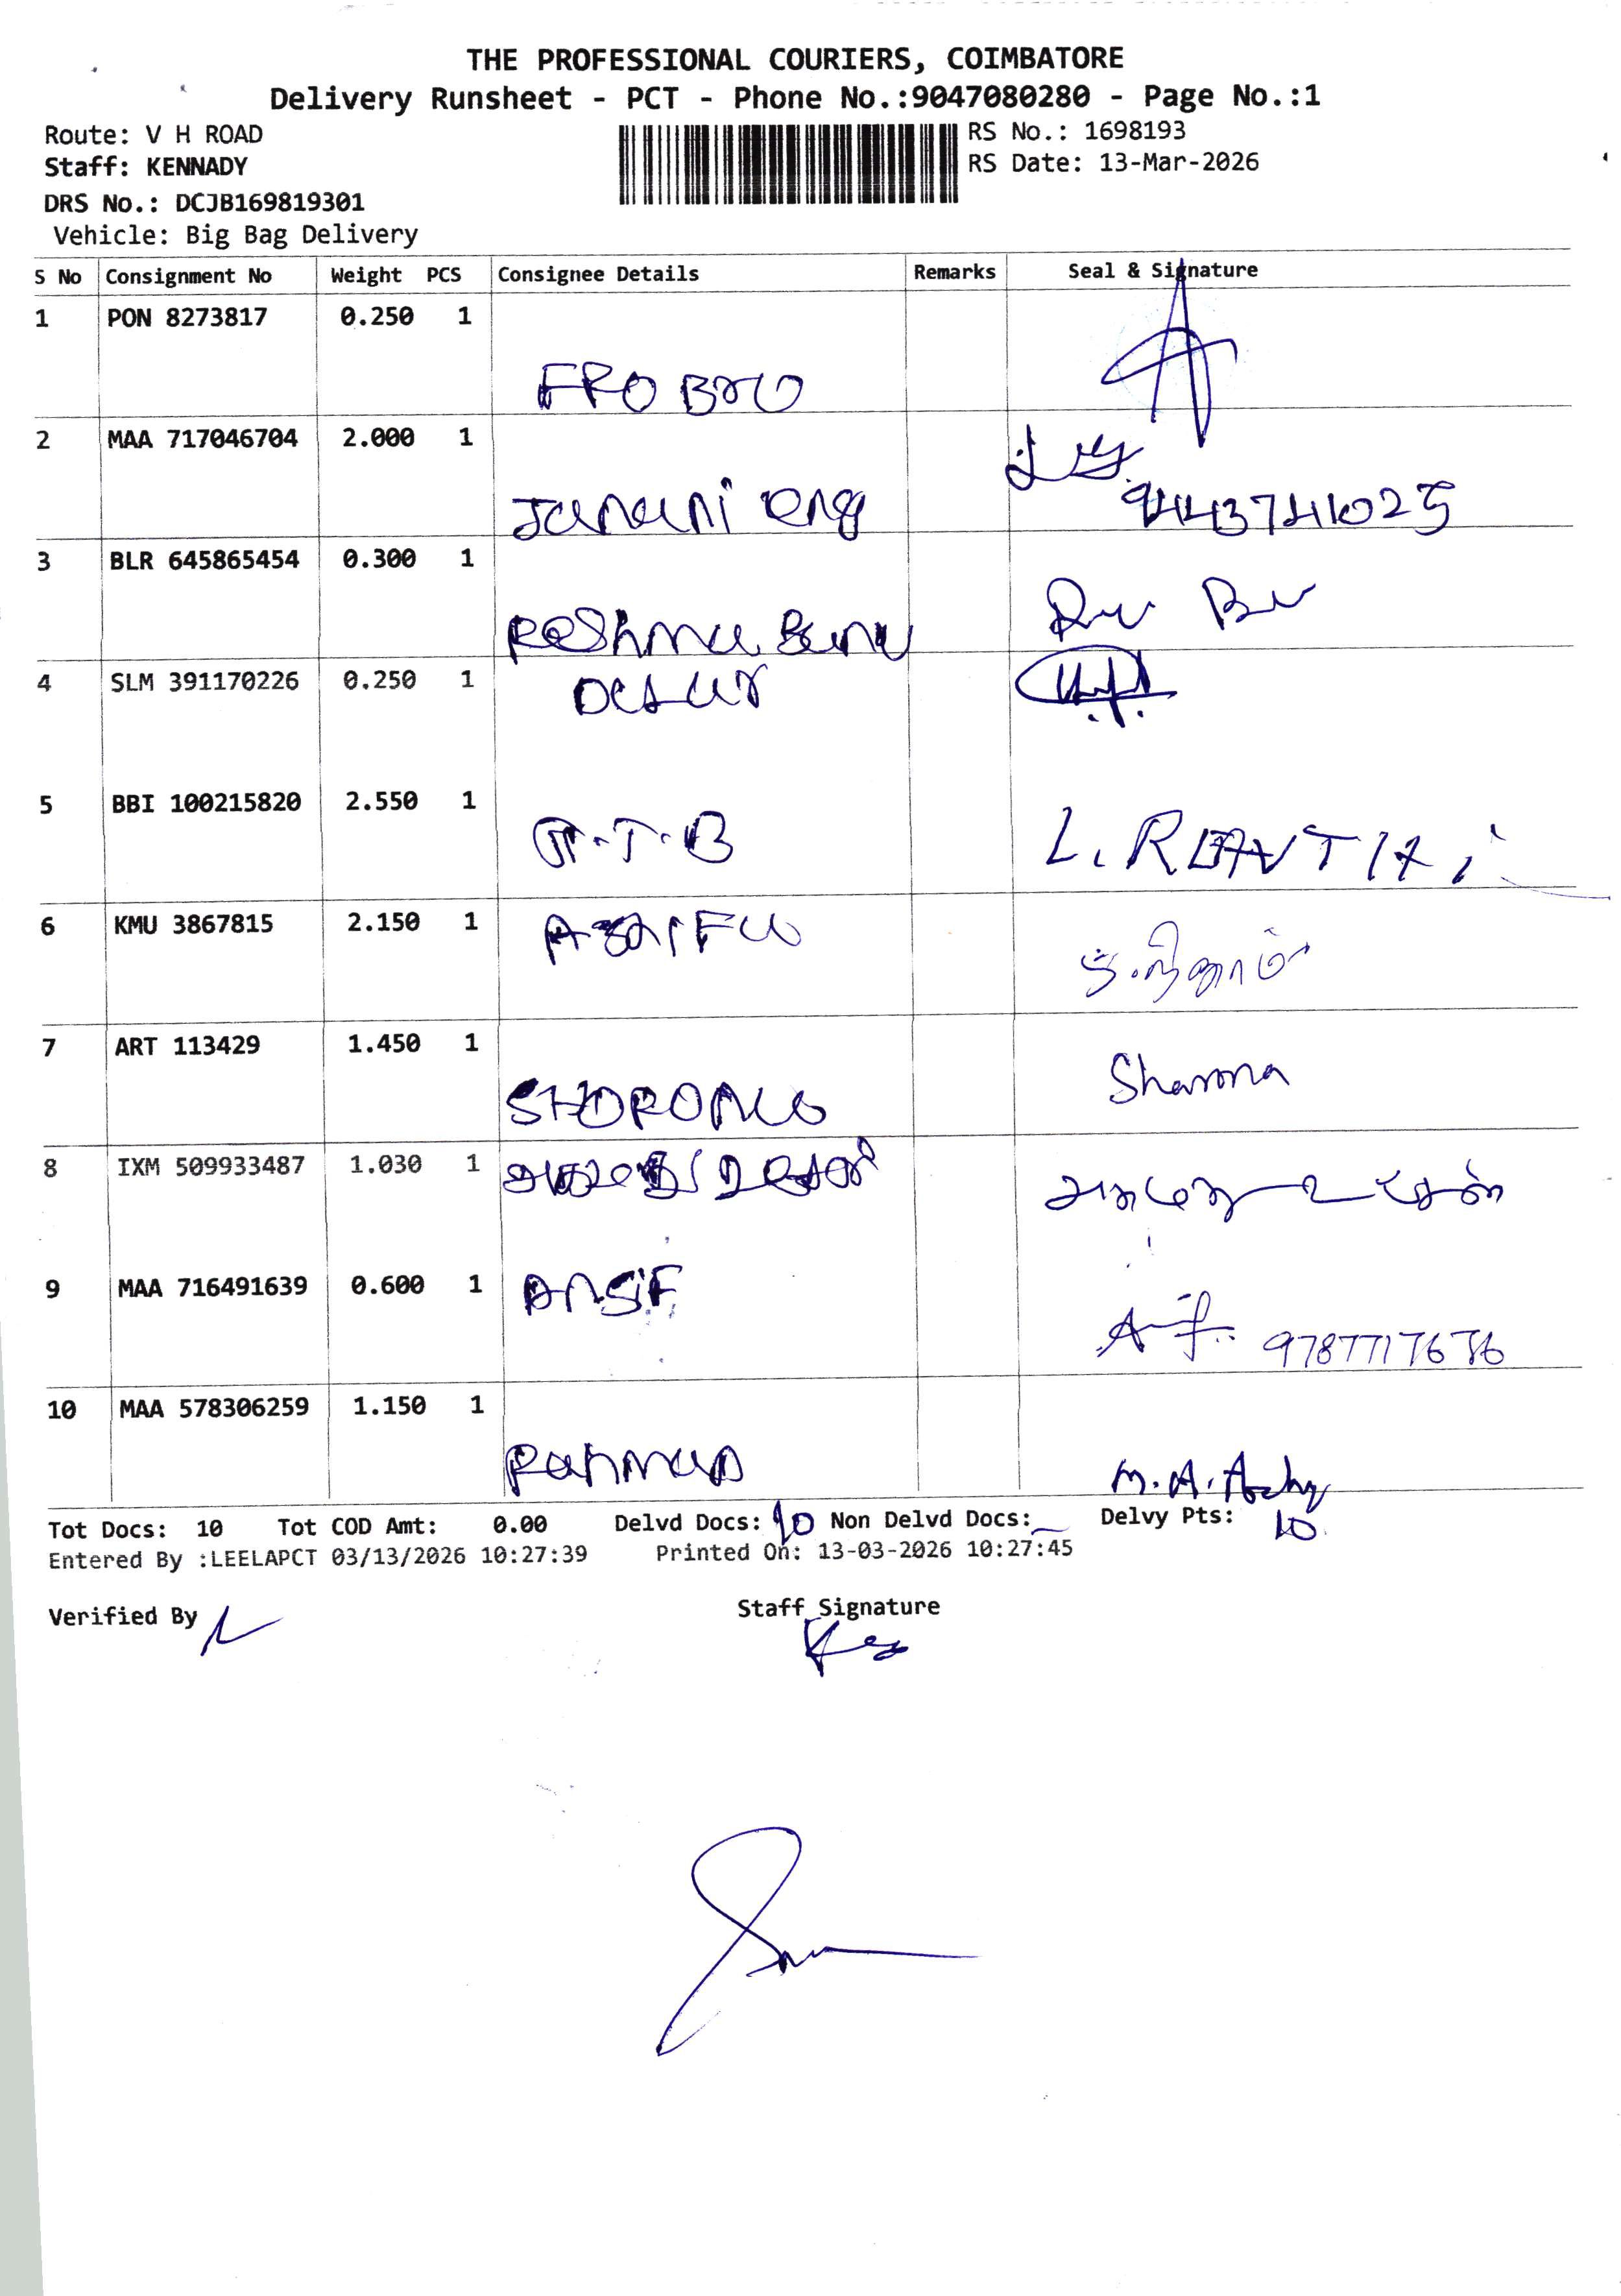 THE PROFESSIONAL COURIERS, COIMBATORE
Delivery Runsheet - PCT - Phone No.:9047080280 - Page No.:1
Route: V H ROAD
RS No.: 1698193
Staff: KENNADY
RS Date: 13-Mar-2026
DRS No.: DCJB169819301
Vehicle: Big Bag Delivery
S No Consignment No Weight PCS Consignee Details Remarks Seal & Signature
1 PON 8273817 0.250 1
FRO BRO
2 MAA 717046704 2.000 1
Janani eng 9443741025
3 BLR 645865454 0.300 1
Reshma Banu
4 SLM 391170226 0.250 1
5 BBI 100215820 2.550 1
6 KMU 3867815 2.150 1
7 ART 113429 1.450 1
Sharma
8 IXM 509933487 1.030 1
9 MAA 716491639 0.600 1 ANSIF
9787717676
10 MAA 578306259 1.150 1
Rahman
Tot Docs: 10 Tot COD Amt: 0.00 Delvd Docs: 10 Non Delvd Docs: Delvy Pts: 10
Entered By :LEELAPCT 03/13/2026 10:27:39 Printed On: 13-03-2026 10:27:45
Verified By Staff Signature